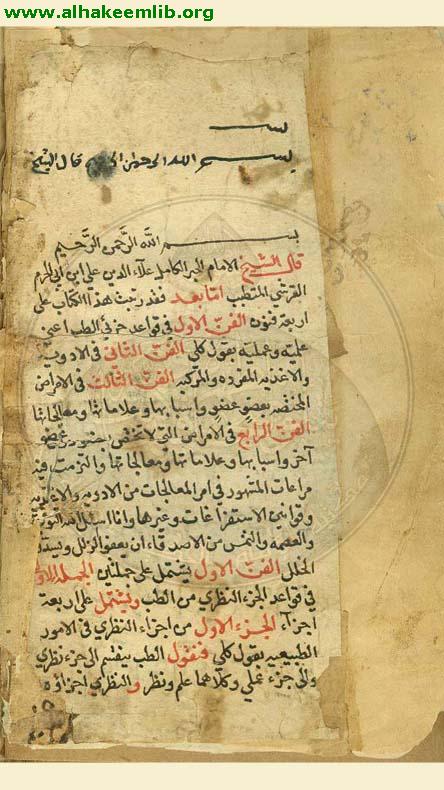 www.alhakeemlib.org
بســـــــم
بســـــــم الله الرحمن قال الشيخ
بســـــــم الله الرحمن الرحيم
قال الشيخ الامام الحبر الكامل علاء الدين علي ابن ابي الحرم
القرشي المتطبب اما بعد فقد رتبت هذا الكتاب على
اربعة فنون الفن الاول في قواعد جزئي الطب اعني
علميه وعمليه بقول كلي الفن الثاني في الادويه
والاغذيه المفرده والمركبه الفن الثالث في الامراض
المختصه بعضو عضو واسبابها وعلاماتها ومعالجاتها
الفن الرابع في الامراض التي لا تختص بعضو دون عضو
آخر واسبابها وعلاماتها ومعالجاتها والتزمت فيه
مراعات المشهور في امر المعالجات من الادويه والاغذيه
وقوانين الاستفراغات وغيرها وانا اسئل الله التوفيق
والعصمه والتمس من الاصدقاء ان يعفو الزلل ويسدد
الخلل الفن الاول يشتمل على جملتين الجمله الاولى
في قواعد الجزء النظري من الطب ويشتمل على اربعة
اجزاء الجزء الاول من اجزاء النظري في الامور
الطبيعيه بقول كلي فنقول الطب ينقسم الى جزء نظري
والى جزء عملي وكلاهما علم ونظر والنظري اجزاؤه